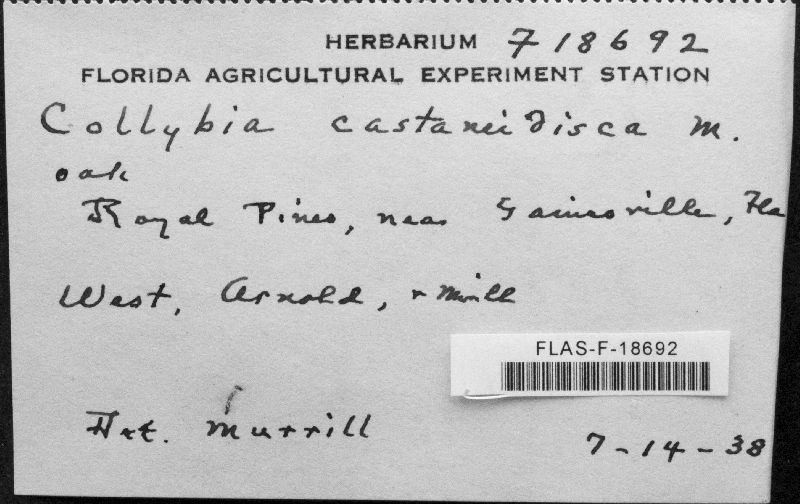 HERBARIUM F18692
FLORIDA AGRICULTURAL EXPERIMENT STATION
Collybia castaneidisca M.
oak
Royal Pines, near Gainesville, Fla
West, Arnold, + Murrill
FLAS-F-18692
Det. Murrill
7-14-38